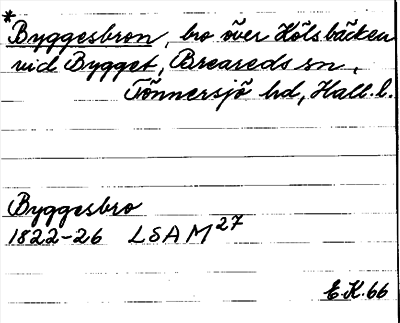 *
Byggesbron, bro över Hölsbäcken
vid Bygget, Breareds sn,
Tönnersjö hd, Hall. l.
Byggesbro
1822-26 LSA M27
E.K. 66